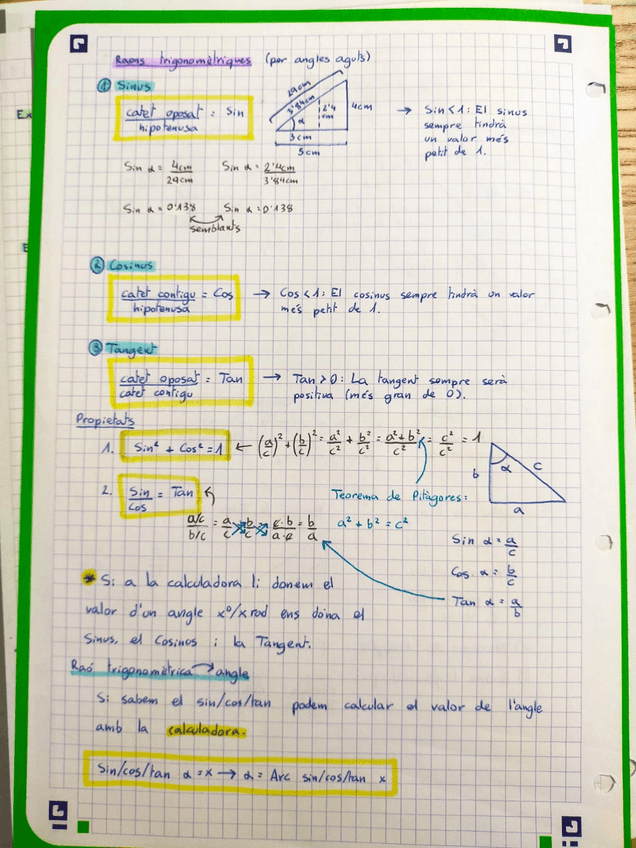 Raons trigonomètriques (per angles aguts)
① Sinus
catet oposat / hipotenusa = Sin
29cm
3'84cm
α
2'4 cm
4cm
3cm
5cm
→ Sin < 1: El sinus
sempre tindrà
un valor més
petit de 1.
Sin α = 4cm / 29cm Sin α = 2'4cm / 3'84cm
Sin α = 0'138 Sin α = 0'138
semblants
② Cosinus
catet contigu / hipotenusa = Cos → Cos < 1: El cosinus sempre tindrà un valor
més petit de 1.
③ Tangent
catet oposat / catet contigu = Tan → Tan > 0: La tangent sempre serà
positiva (més gran de 0).
Propietats
1. Sin² + Cos² = 1 ← (a/c)² + (b/c)² = a²/c² + b²/c² = a²+b²/c² = c²/c² = 1
b α c
a
2. Sin/Cos = Tan
Teorema de Pitàgores:
a² + b² = c²
Sin α = a/c
Cos α = b/c
Tan α = a/b
Si a la calculadora li donem el
valor d'un angle xº/x rad ens dóna el
Sinus, el Cosinos i la Tangent.
Raó trigonomètrica → angle
Si sabem el sin/cos/tan podem calcular el valor de l'angle
amb la calculadora.
Sin/cos/tan α = x → α = Arc sin/cos/tan x